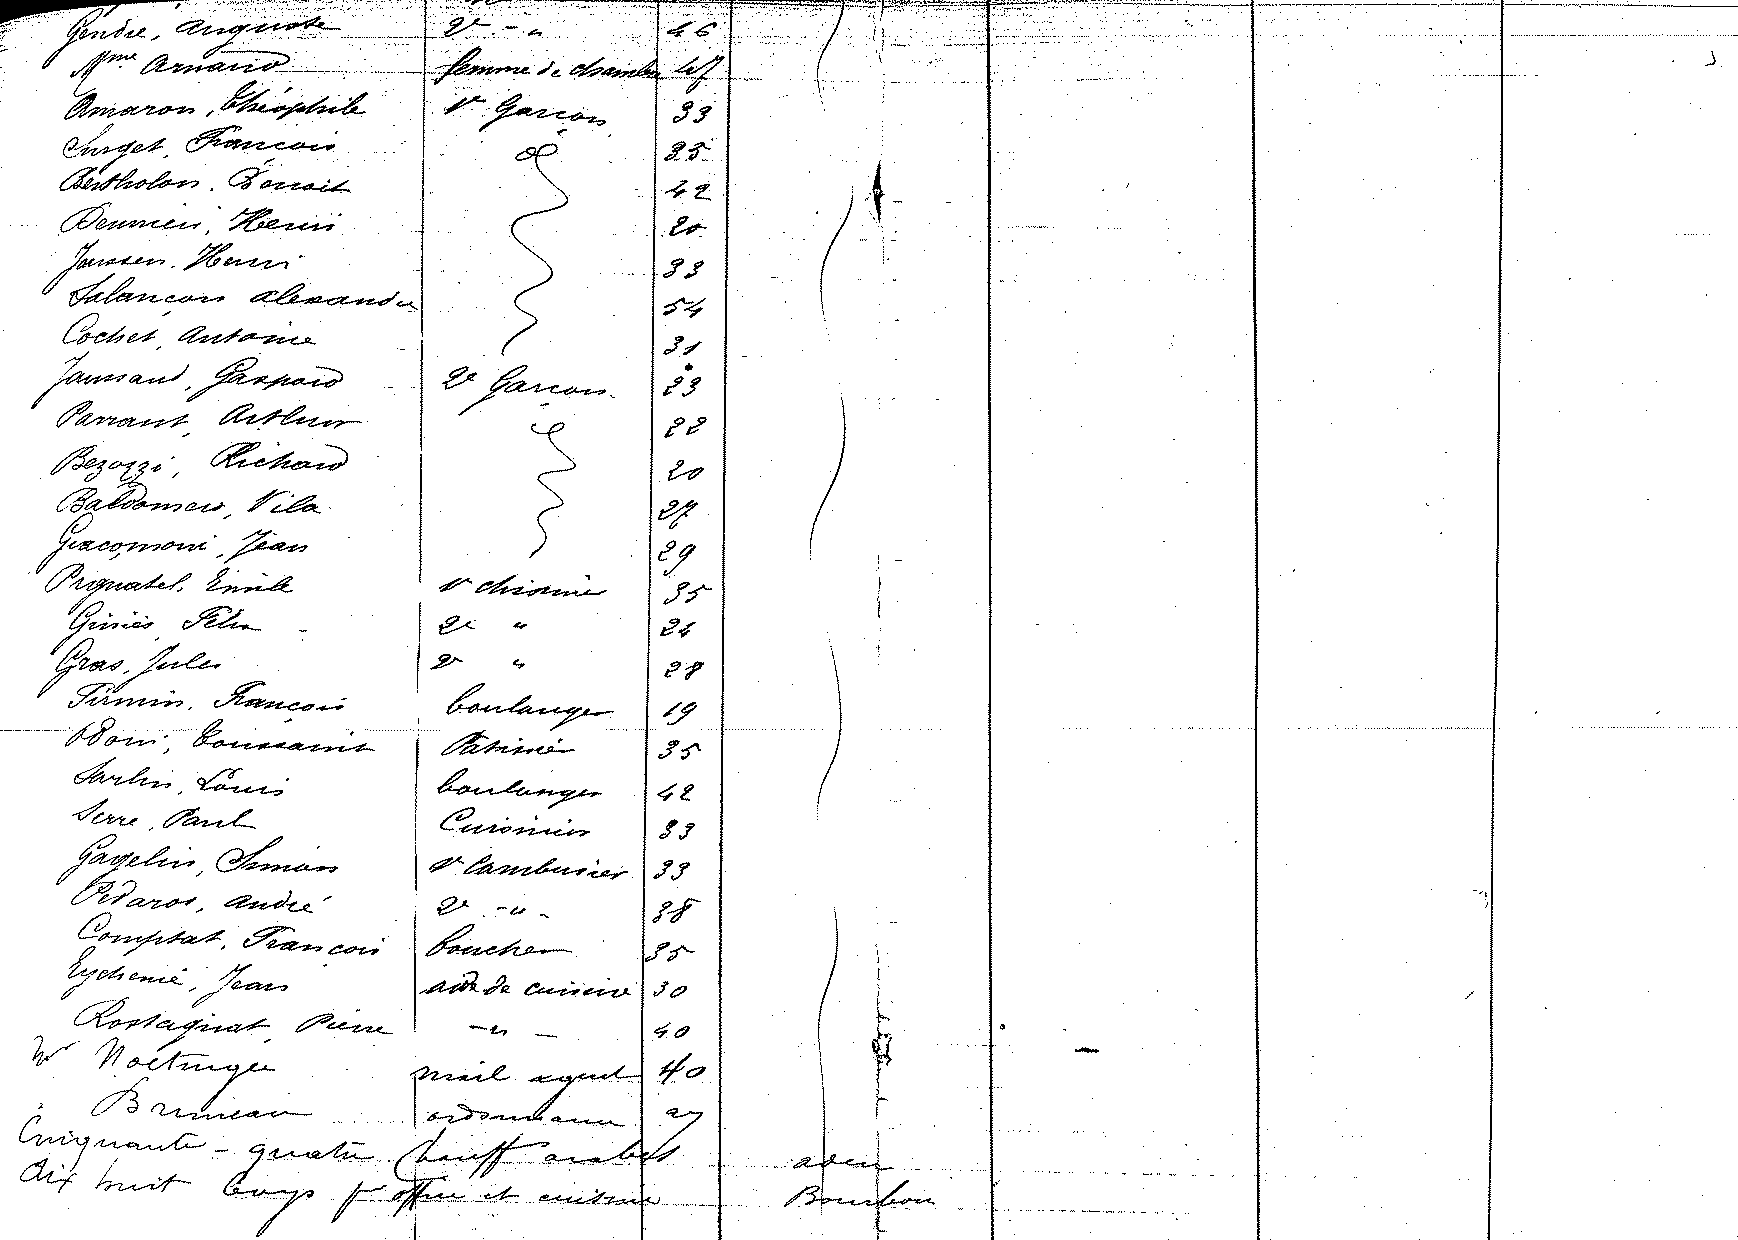 Gendre, Auguste 2e - " 46
Mme Arnaud femme de chambre 47
Amaron, Théophile 1er Garçon 33
Surget, François d° 35
Bertholon, Benoit 42
Henri 20
Janssen, Henri 33
Salançon Alexandre 54
Cochet, Antoine 31
Jaussaud, Gaspard 2e Garçon 23
Parrant, Arthur 22
Bezozzi, Richard 20
Baldomero, Vila 27
Giacomoni, Jean 29
Pignatel, Emile 1er cuisinier 35
Giniés, Félix 2e " 24
Gras, Jules 2e " 28
Firmin, François boulanger 19
Odoni, Toussaint Patissier 35
Sarlin, Louis boulanger 42
Serre, Paul Cuisinier 33
Gagelin, Simon 1er Cambusier 33
Pedaros, André 2e - " - 38
Comptat, François boucher 35
Eychenié, Jean aide de cuisine 30
Rostagnat, Pierre - " - 40
Mr Noetinger mail agent 40
Bruneau 27
Cinquante-quatre Chauff arabes aden
dix huit boys pr office et cuisine Bourbon